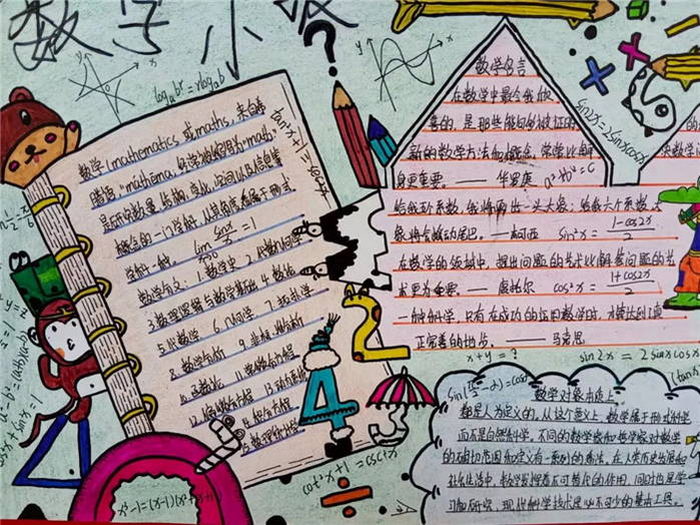 数学小报
log_a b^x = xlog_a b
tan²x+1=sec²x
数学(mathematics 或 maths, 来自希
腊语,"máthēma,经常被缩写为"math")
是研究数量、结构、变化、空间以及信息等
概念的一门学科,从某角度看属于形式
科学的一种。 lim sinx/x = 1
x→0
数学分支: 1. 数学史 2.
3. 数理逻辑与数学基础 4. 数论
5. 代数学 6. 几何学 7. 拓扑学
8. 数学分析 9. 非标准分析
10. 函数论 11. 常微分方程
12. 偏微分方程 13. 动力系统
14. 积分方程
cot²x+1=csc²x
x³-1=(x-1)(x²+x+1)
a²-b²=(a+b)(a-b)
数学名言
在数学中最令我欣
喜的,是那些能够被证明的
新的数学方法和概念,常常比
身更重要。 —— 华罗庚
a²+b²=c
给我五个系数,我将画出一头大象;给我六个系数,大
象将会摇动尾巴。——柯西 sin²x= (1-cos2x)/2
在数学的领域中,提出问题的艺术比解答问题的艺
术更为重要。——康托尔 cos²x= (1+cos2x)/2
一种科学,只有在成功的运用数学时,才算达到了真
正完善的地步。 —— 马克思
x+y=?
sin2x = 2sinxcosx
sin2x=2sinxcosx
数学对象本质上
都是人为定义的,从这个意义上,数学属于形式科学,
而不是自然科学。不同的数学家和哲学家对数学
的确切范围和定义有一系列的看法。在人类历史发展和
社会生活中,数学发挥着不可替代的作用,同时也是学
习和研究,现代科学技术必不可少的基本工具。